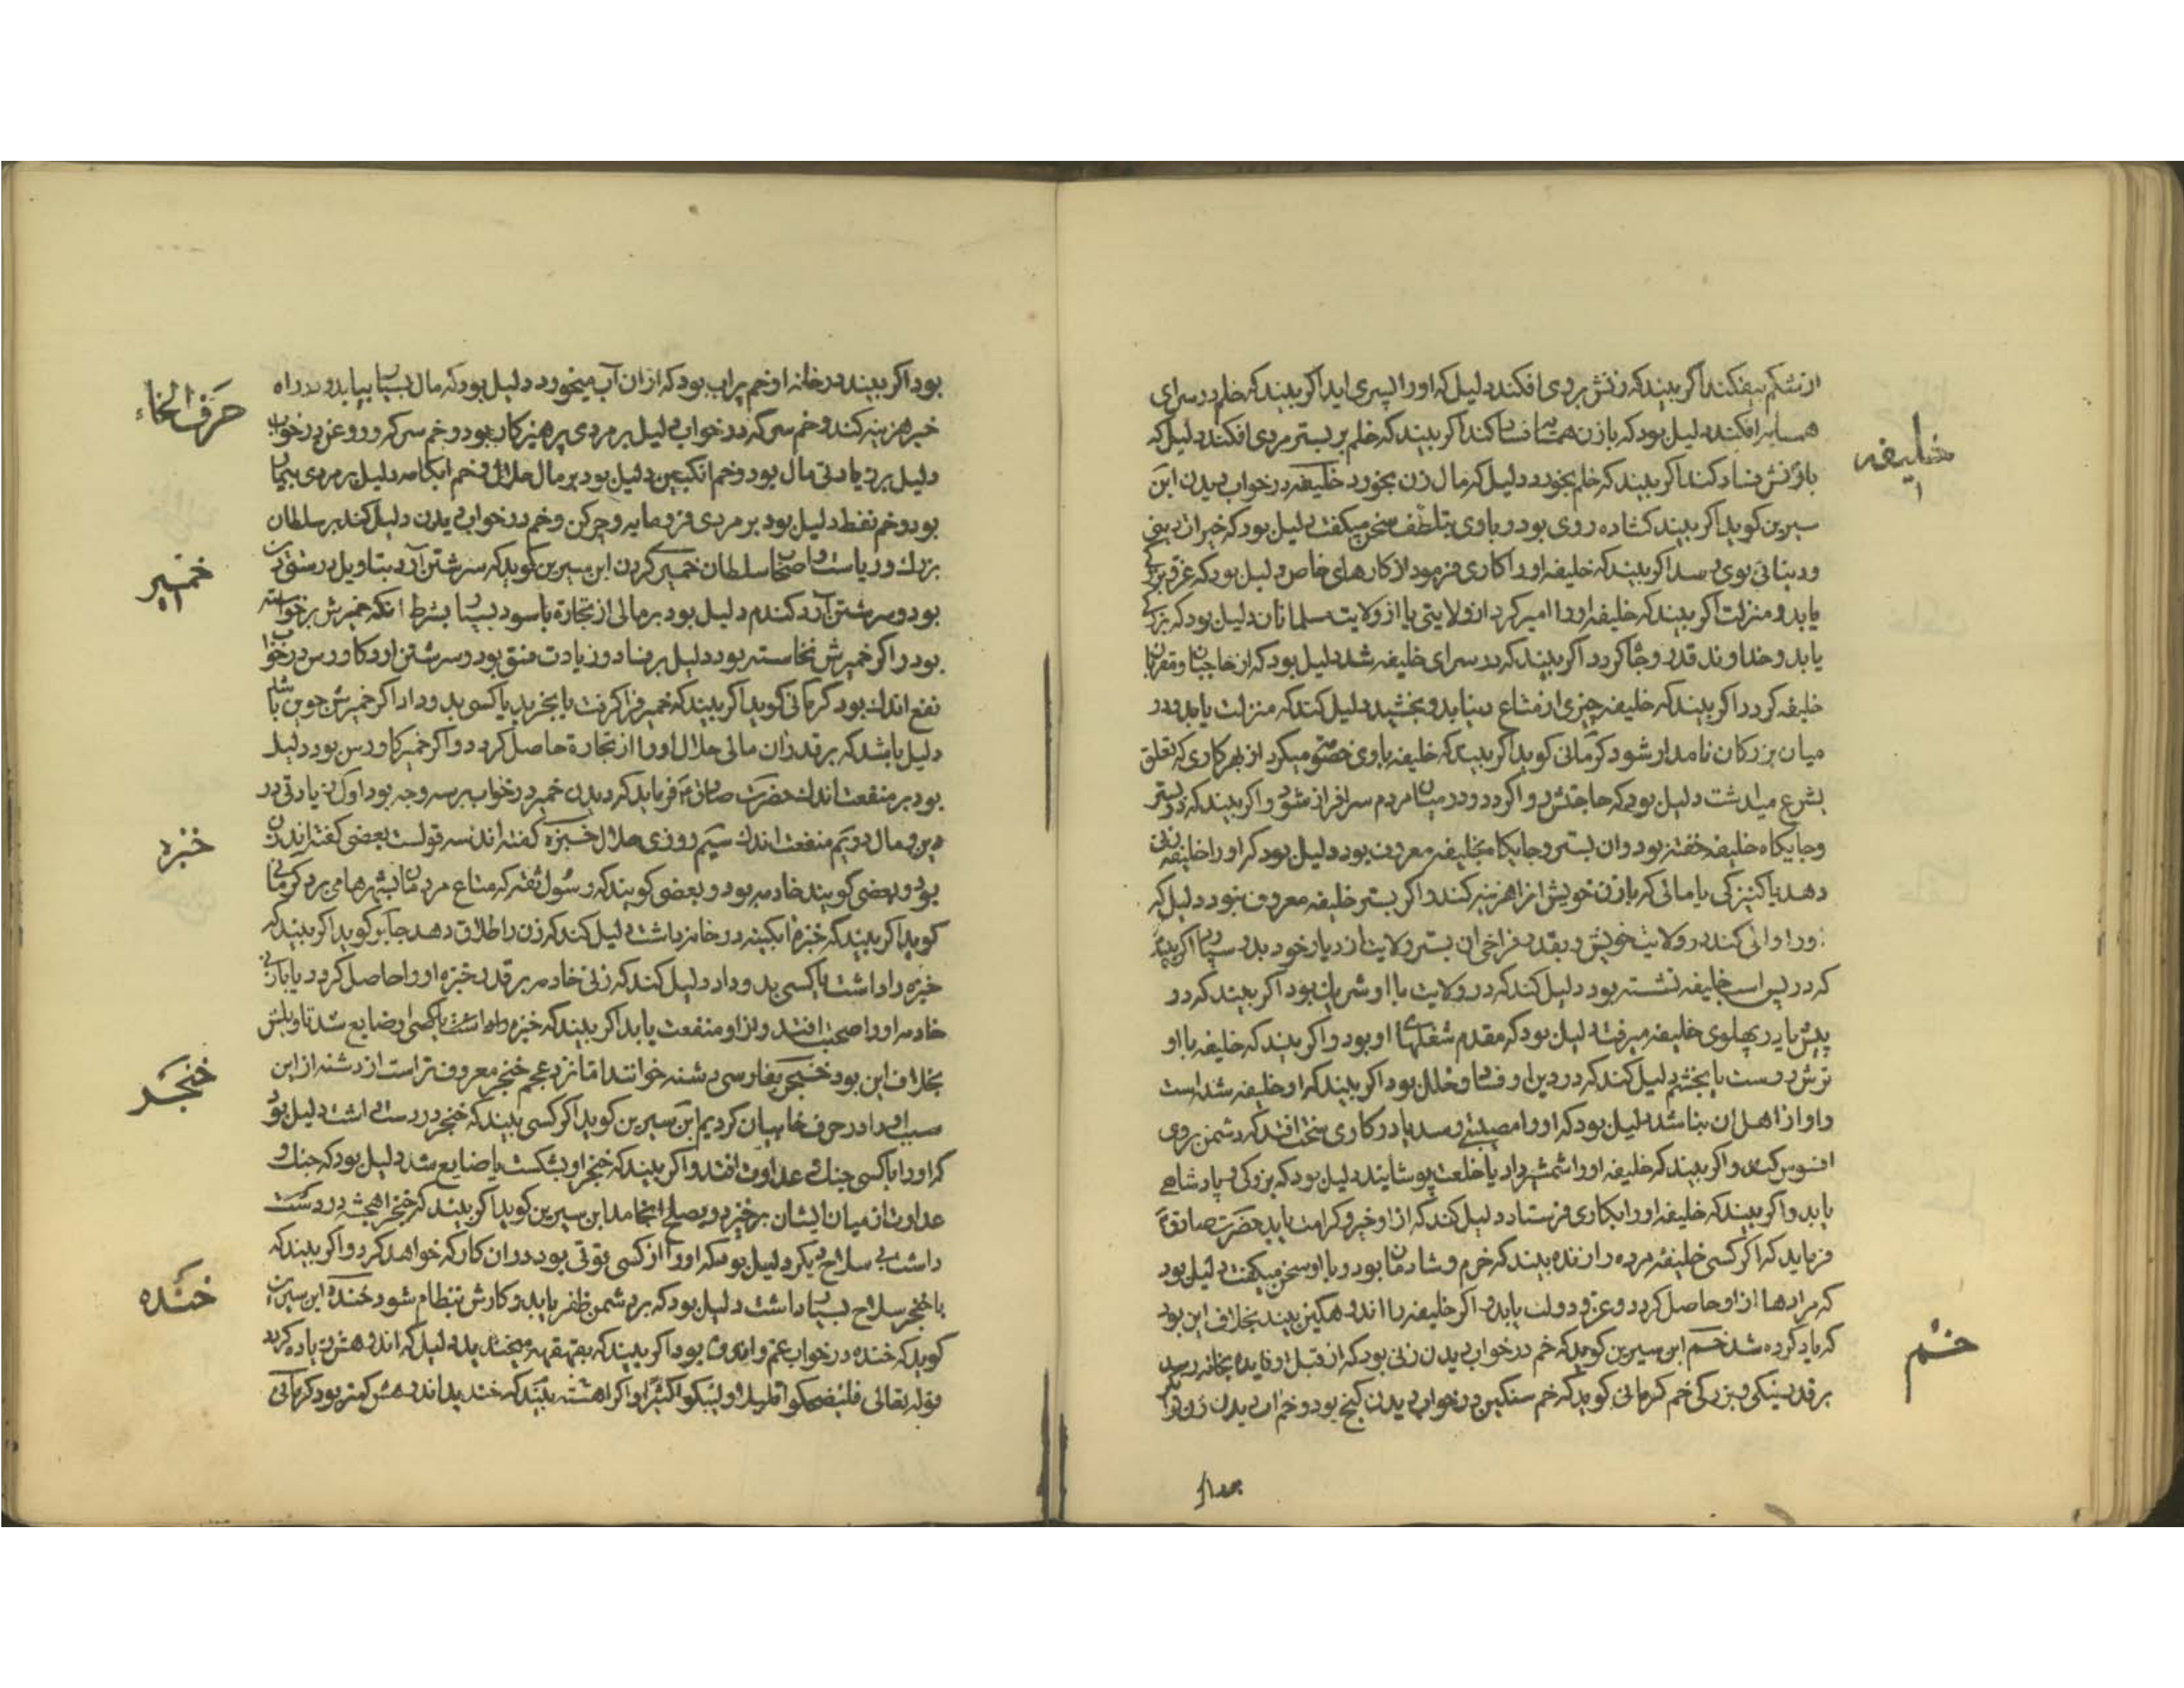 خلیفه
از شکم بیفکند اگر بیند که زنش بروی افکند دلیل که او را پسری اید اگر بیند که خلم در سرای
همسایه افکند دلیل بود که با زن همسایه فساد کند اگر بیند که خلم بر بستر مردی افکند دلیل که
با زنش فساد کند اگر بیند که خلم بخورد دلیل که مال زن بخورد خلیفه در خواب دیدن ابن
سیرین کوید اگر بیند کشاده روی بود و با وی بتلطف سخن میکفت دلیل بود که خیرات دینی
و دنیائی بوی رسد اگر بیند که خلیفه او را کاری فرمود از کارهای خاص دلیل بود که عز و بزرکی
یابد و منزلت اگر بیند که خلیفه او را امیر کرد از ولایتی یا از ولایت مسلمانان دلیل بود که بزرکی
یابد و خداوند قدر و جاه کردد اگر بیند که در سرای خلیفه شد دلیل بود که از حاجبان و مقربان
خلیفه کردد اگر بیند که خلیفه چیزی از متاع دنیا بدو بخشید دلیل کند که منزلت یابد و در
میان بزرکان نامدار شود کرمانی کوید اگر بیند که خلیفه با وی خصومت میکرد از بهر کاری که تعلق
بشرع میداشت دلیل بود که حاجتش روا کردد و در میان مردم سرافراز شود و اگر بیند که در بستر
و جایکاه خلیفه خفته بود و ان بستر و جایکاه بخلیفه معروف بود دلیل بود که او را خلیفه زنی
دهد یا کنیزکی یا مالی که با زن خویش از ان هزینه کند و اگر بستر خلیفه معروف نبود دلیل که
او را والی کند در ولایت خویش و بقدر فراخی ان بستر ولایت از دیار خود بدو سپارد اگر بیند
که در پس اسب خلیفه نشسته بود دلیل کند که در ولایت با او شریک بود اگر بیند که در
پیش یا در پهلوی خلیفه میرفت دلیل بود که مقدم شغلهای او بود و اگر بیند که خلیفه با او
ترش روست یا بخشم دلیل کند که در دین او فساد و خلل بود اگر بیند که او خلیفه شده است
و او از اهل ان نباشد دلیل بود که او را مصیبتی رسد یا در کاری سخت افتد که دشمن بر وی
افسوس کند و اگر بیند که خلیفه او را شمشیر داد یا خلعت پوشانید دلیل بود که بزرکی و پادشاهی
یابد و اگر بیند که خلیفه او را بکاری فرستاد دلیل کند که از او خیر و کرامت یابد حضرت صادق ع
فرماید که اگر کسی خلیفه مرده را زنده بیند که خرم و شادمان بود و با او سخن میکفت دلیل بود
که مرادها از او حاصل کردد و عز و دولت یابد و اگر خلیفه را اندوهکین بیند بخلاف این بود
خم
که یاد کرده شد خم ابن سیرین کوید که خم در خواب دیدن زنی بود که از قبل او فایده بخانه رسد
بر قدر نیکی و بزرکی خم کرمانی کوید که خم سنکین در خواب دیدن کنج بود و خم اب دیدن زن
حرف الخاء
بود اگر بیند در خانه او خم پر اب بود که از ان آب میخورد دلیل بود که مال بسیار بیابد و در راه
خیر هزینه کند و خم سرکه در خواب دلیل بر مردی پرهیز کار بود و خم سرکه و روغن در خواب
دلیل بر زیادتی مال بود و خم انکبین دلیل بود بر مال حلال و خم ابکامه دلیل بر مردی بیمار
بود و خم نفط دلیل بود بر مردی فرومایه و چرکن و خم در خواب دیدن دلیل کند بر سلطان
خمیر
بزرك و ریاست و اصحاب سلطان خمیر کردن ابن سیرین کوید که سرشتن آرد بتاویل درستی دین
بود و سرشتن آرد کندم دلیل بود بر مالی از تجارة با سود بسیار بشرط انکه خمیرش بر خواسته
بود و اگر خمیرش نخاسته بود دلیل بر فساد و زیادت فسق بود و سرشتن ارد کاورس در خواب
نفع اندك بود کرمانی کوید اگر بیند که خمیر فرا کرفت یا بخرید یا کسی بدو داد اگر خمیرش جوین باشد
دلیل باشد که بر قدر ان مالی حلال او را از تجارة حاصل کردد و اگر خمیر کاورس بود دلیل
بود بر منفعت اندك حضرت صادق ع فرماید که دیدن خمیر در خواب بر سه وجه بود اول زیادتی در
خنبره
دین و مال دویم منفعت اندك سیم روزی حلال خنبره کفته اند سه قولست بعضی کفته اند زن
بود و بعضی کویند خادمه بود و بعضی کویند که رسول ثقه که متاع مردمان بشهرها می برد کرمانی
کوید اگر بیند که خنبره ابکینه در خانه داشت دلیل کند که زن را طلاق دهد جابر کوید اگر بیند که
خنبره داشت یا کسی بدو داد دلیل کند که زنی خادمه بر قدر خنبره او را حاصل کردد یا با زنی
خادمه او را صحبت افتد و از او منفعت یابد اگر بیند که خنبره داشت یا کسی او ضایع شد تاویلش
خنجر
بخلاف این بود خنجر بفارسی دشنه خوانند اما نزد عجم خنجر معروفتر است از دشنه از این
سبب او را در حرف خا بیان کردیم ابن سیرین کوید اگر کسی بیند که خنجر در دست داشت دلیل بود
که او را با کسی جنك و عداوت افتد و اگر بیند که خنجر او بشکست یا ضایع شد دلیل بود که جنك و
عداوت از میان ایشان برخیزد و بصلح انجامد ابن سیرین کوید اگر بیند که خنجر همیشه در دست
داشت بی سلاح دیکر دلیل بود که او را از کسی قوتی بود در ان کار که خواهد کرد و اگر بیند که
خنده
با خنجر سلاح بسیار داشت دلیل بود که بر دشمن ظفر یابد و کارش بنظام شود خنده ابن سیرین
کوید که خنده در خواب غم و اندوه بود اگر بیند که بقهقهه میخندید دلیل که اندوهش زیاده کردد
قوله تعالی فلیضحکوا قلیلا و لیبکوا کثیرا و اگر اهسته بیند که خندید اندوهش کمتر بود کرمانی